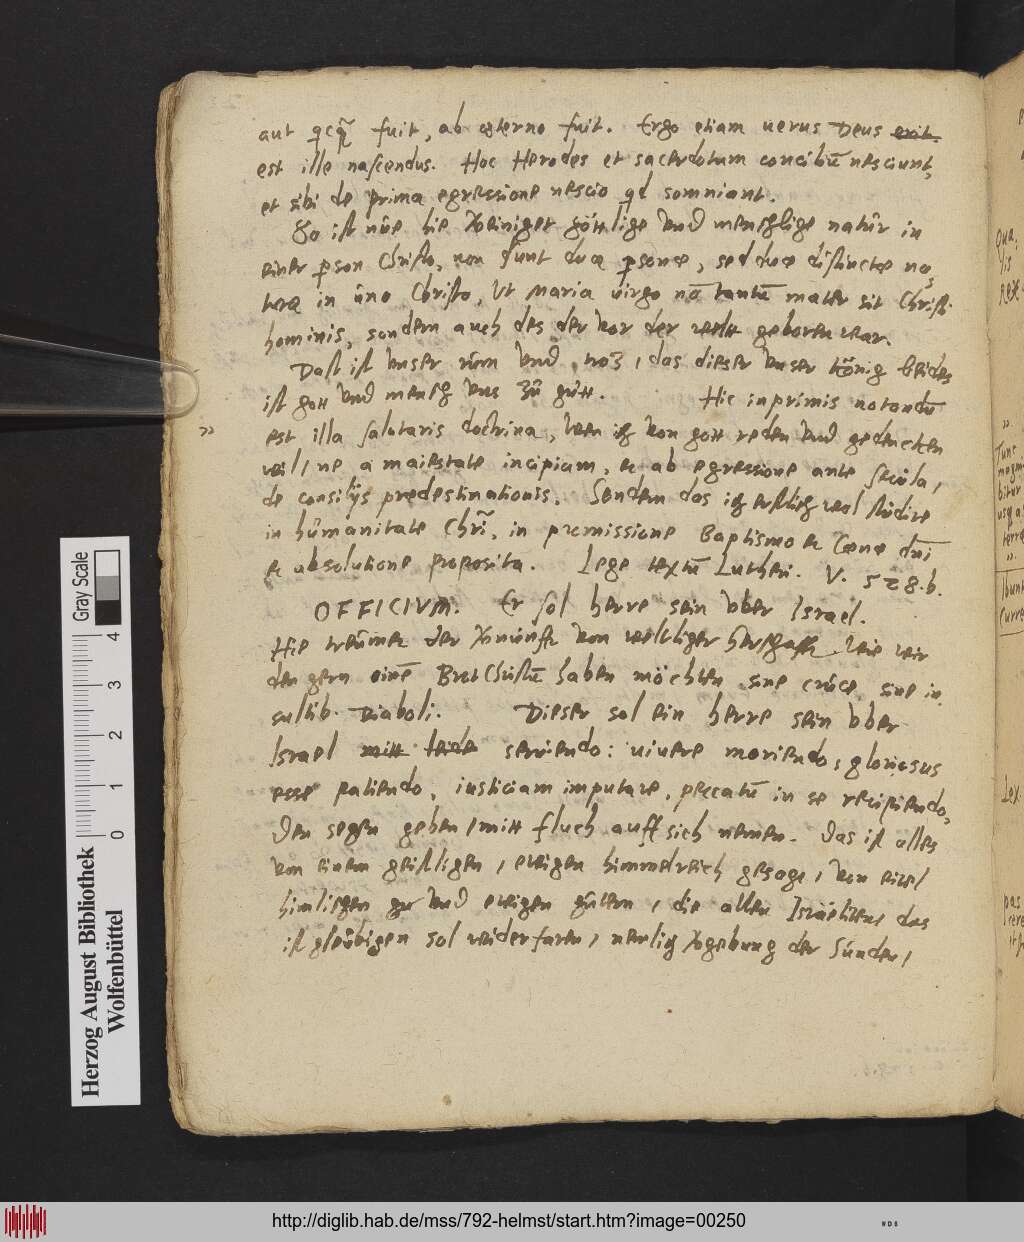 aut qcq̃ fuit, ab æterno fuit. Ergo etiam uerus Deus erit
est ille nascendus. Hoc Herodes et sacerdotum conciliũ nesciunt,
et sibi de prima egressione nescio qd somniant.
So ist nůe die Voreiniget göttlige vnd menschlige natůr in
einer pson Christo, non sunt duæ psonæ, sed duæ distinctæ na
turæ in ůno Christo, Vt Maria uirgo nõ tantũ mater sit Christi
hominis, sondern auch des der vor der welt geboren war.
Dast ist vnser rům vnd, das dieser vnser König beides
ist gott vnd mensch vns zů gůtt. Hic inprimis notandũ
est illa salutaris doctrina, wen ich von gott reden vnd gedencken
wil, ne a maiestate incipiam, & ab egressione ante secůla,
de consilijs predestinationis. Sondern das ich erstlich wol stůdire
in hůmanitate Chri, in promissione Baptismo & Cœnæ dñi
& absolutione proposita. Lege textũ Lutheri. V. 528.b.
OFFICIVM. Er sol herre sein vber Israel.
Hie treůmet der von weltliger herschafft Wie wir
den gern einẽ Christũ haben möchten sine crůce sine in
sultib. Diaboli. Dieser sol ein herre sein vber
Israel mitt leide seruiendo: uiuere moriendo, gloriosus
esse patiendo, iusticiam imputare, peccatũ in se recipiendo,
Den segen geben, mitt fluch auff sich nemen. Das ist alles
von einem geistligen, ewigen himmelreich gesagt, von eitel
himlischen gu vnd ewigen gůtern, die allen Israëliten, das
ist gleůbigen sol widerfaren, nemlich Vorgebung der Sünden,
Herzog August Bibliothek
Wolfenbüttel
Gray Scale
0 1 2 3 4
http://diglib.hab.de/mss/792-helmst/start.htm?image=00250